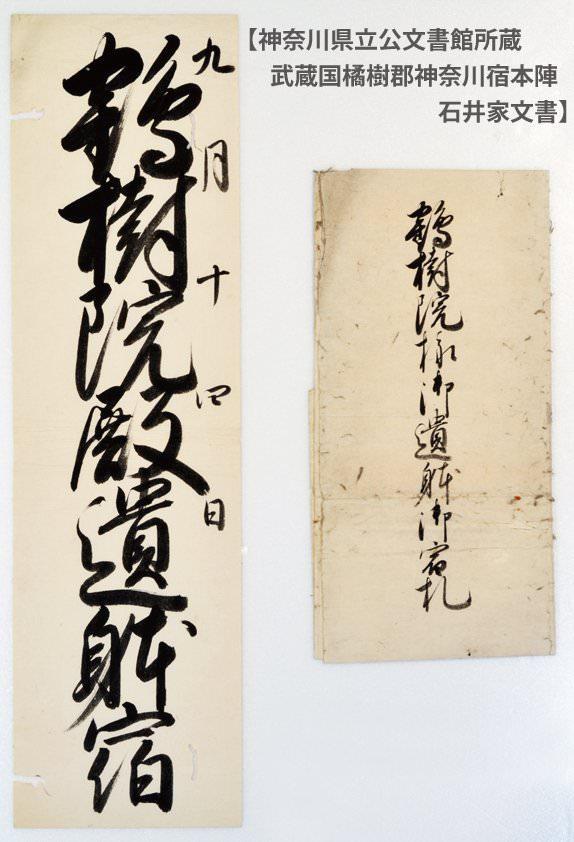 【神奈川県立公文書館所蔵
武蔵国橘樹郡神奈川宿本陣
石井家文書】
九月十四日
鶴樹院殿遺躰宿
鶴樹院様御遺躰御宿札